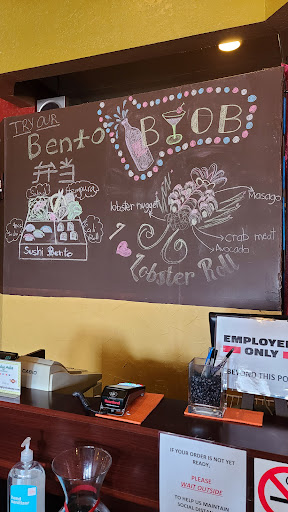 TRY OUR
Bento
弁当
BYOB
Tempura
Sushi Bento
lobster nugget
Masago
Crab meat
Avocado
I
Lobster Roll
EMPLOYEE
ONLY
BEYOND THIS PO
CASIO
IF YOUR ORDER IS NOT YET
READY,
PLEASE
WAIT OUTSIDE
TO HELP US MAINTAIN
SOCIAL DISTAN